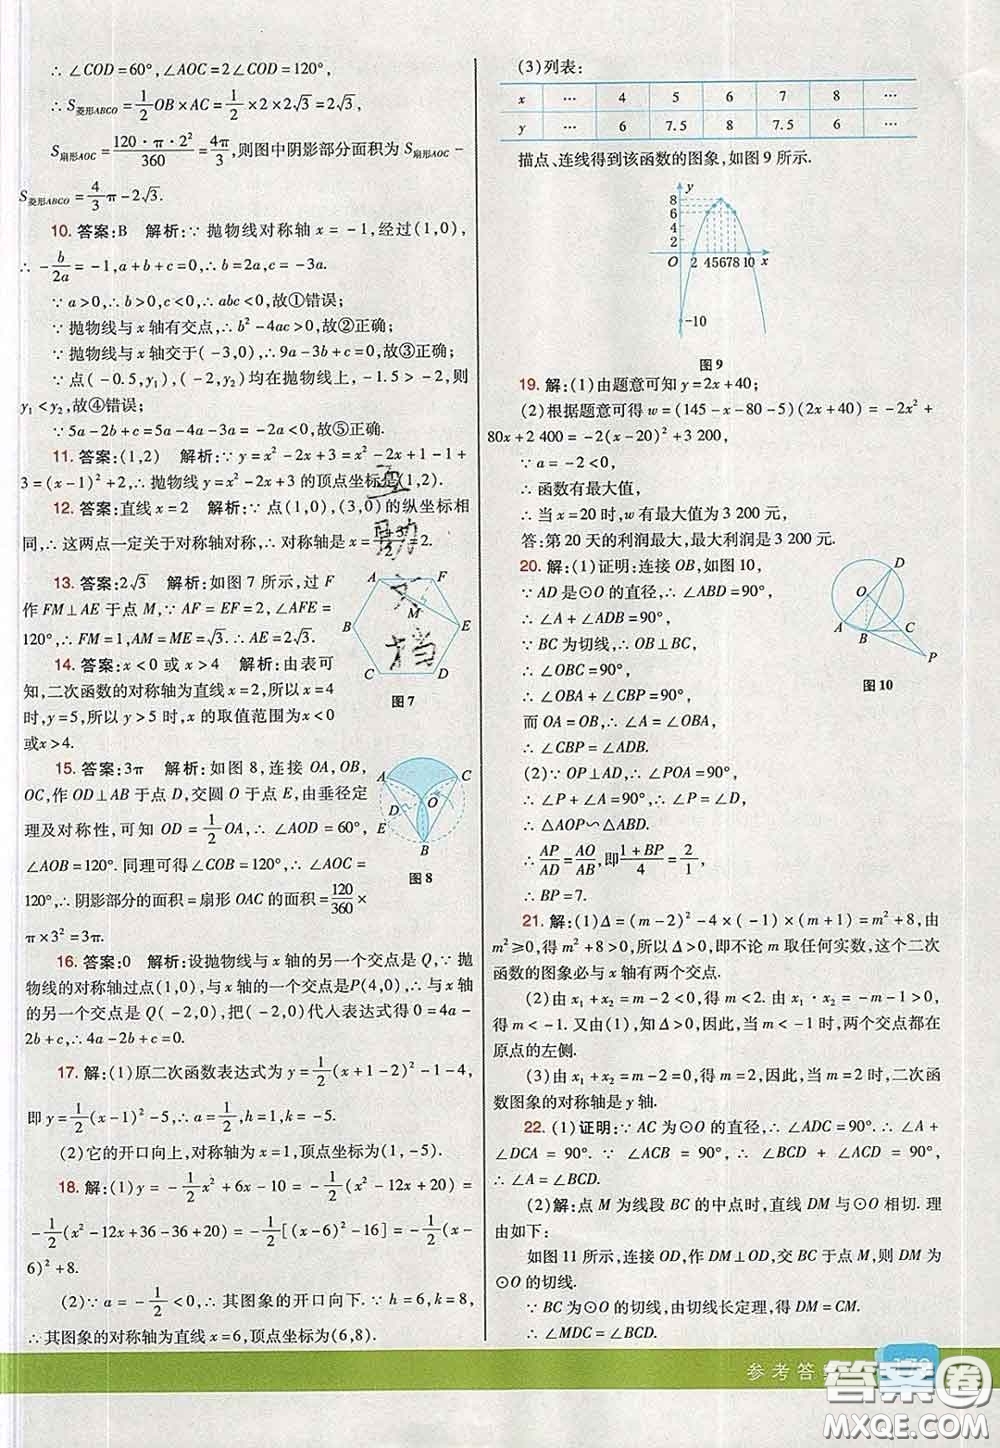 ∴ ∠COD=60°,∠AOC=2∠COD=120°,
∴ S菱形ABCO=1/2 OB×AC=1/2×2×2√3=2√3,
S扇形AOC=120·π·2²/360=4π/3,则图中阴影部分面积为 S扇形AOC-
S菱形ABCO=4/3 π-2√3.
10. 答案:B 解析:∵ 抛物线对称轴 x=-1,经过(1,0),
∴ -b/2a=-1,a+b+c=0,∴ b=2a,c=-3a.
∵ a>0,∴ b>0,c<0,∴ abc<0,故①错误;
∵ 抛物线与 x 轴有交点,∴ b²-4ac>0,故②正确;
∵ 抛物线与 x 轴交于(-3,0),∴ 9a-3b+c=0,故③正确;
∵ 点(-0.5,y₁),(-2,y₂)均在抛物线上,-1.5>-2,则
y₁<y₂,故④错误;
∵ 5a-2b+c=5a-4a-3a=-2a<0,故⑤正确.
11. 答案:(1,2) 解析:∵ y=x²-2x+3=x²-2x+1-1+
3=(x-1)²+2,∴ 抛物线 y=x²-2x+3 的顶点坐标是(1,2).
12. 答案:直线 x=2 解析:∵ 点(1,0),(3,0)的纵坐标相
同,∴ 这两点一定关于对称轴对称,∴ 对称轴是 x= =2.
13. 答案:2√3 解析:如图 7 所示,过 F
作 FM⊥AE 于点 M,∵ AF=EF=2,∠AFE=
120°,∴ FM=1,AM=ME=√3.∴ AE=2√3.
A F M B E C D
图 7
14. 答案:x<0 或 x>4 解析:由表可
知,二次函数的对称轴为直线 x=2,所以 x=4
时,y=5,所以 y>5 时,x 的取值范围为 x<0
或 x>4.
15. 答案:3π 解析:如图 8,连接 OA,OB,
OC,作 OD⊥AB 于点 D,交圆 O 于点 E,由垂径定
理及对称性,可知 OD=1/2 OA,∴ ∠AOD=60°,
∠AOB=120°.同理可得∠COB=120°,∴ ∠AOC=
120°,∴ 阴影部分的面积=扇形 OAC 的面积=120/360×
π×3²=3π.
A C D O E B
图 8
16. 答案:0 解析:设抛物线与 x 轴的另一个交点是 Q,∵ 抛
物线的对称轴过点(1,0),与 x 轴的一个交点是P(4,0),∴ 与 x
轴的另一个交点是 Q(-2,0),把(-2,0)代人表达式得 0=4a-
2b+c,∴ 4a-2b+c=0.
17. 解:(1)原二次函数表达式为 y=1/2(x+1-2)²-1-4,
即 y=1/2(x-1)²-5,∴ a=1/2,h=1,k=-5.
(2)它的开口向上,对称轴为 x=1,顶点坐标为(1,-5).
18. 解:(1)y=-1/2x²+6x-10=-1/2(x²-12x+20)=
-1/2(x²-12x+36-36+20)=-1/2[(x-6)²-16]=-1/2(x-
6)²+8.
(2)∵ a=-1/2<0,∴ 其图象的开口向下.∵ h=6,k=8,
∴ 其图象的对称轴为直线 x=6,顶点坐标为(6,8).
(3)列表:
x … 4 5 6 7 8 …
y … 6 7.5 8 7.5 6 …
描点、连线得到该函数的图象,如图 9 所示.
y 8 6 4 2 O 2 45678 10 x -10
图 9
19. 解:(1)由题意可知 y=2x+40;
(2)根据题意可得 w=(145-x-80-5)(2x+40)=-2x²+
80x+2 400=-2(x-20)²+3 200,
∵ a=-2<0,
∴ 函数有最大值,
∴ 当 x=20 时,w 有最大值为 3 200 元,
答:第 20 天的利润最大,最大利润是 3 200 元.
20. 解:(1)证明:连接 OB,如图 10,
∵ AD 是⊙O 的直径,∴ ∠ABD=90°,
∴ ∠A+∠ADB=90°,
∵ BC 为切线,∴ OB⊥BC,
∴ ∠OBC=90°,
∴ ∠OBA+∠CBP=90°,
而 OA=OB,∴ ∠A=∠OBA,
∴ ∠CBP=∠ADB.
D O A B C P
图 10
(2)∵ OP⊥AD,∴ ∠POA=90°,
∴ ∠P+∠A=90°,∴ ∠P=∠D,
∴ △AOP∽△ABD,
∴ AP/AD=AO/AB,即(1+BP)/4=2/1,
∴ BP=7.
21. 解:(1)Δ=(m-2)²-4×(-1)×(m+1)=m²+8,由
m²≥0,得 m²+8>0,所以 Δ>0,即不论 m 取任何实数,这个二次
函数的图象必与 x 轴有两个交点.
(2)由 x₁+x₂=m-2<0,得 m<2.由 x₁·x₂=-m-1>0,
得 m<-1.又由(1),知 Δ>0,因此,当 m<-1 时,两个交点都在
原点的左侧.
(3)由 x₁+x₂=m-2=0,得 m=2,因此,当 m=2 时,二次函
数图象的对称轴是 y 轴.
22. (1)证明:∵ AC 为⊙O 的直径,∴ ∠ADC=90°.∴ ∠A+
∠DCA=90°.∵ ∠ACB=90°,∴ ∠BCD+∠ACD=90°,
∴ ∠A=∠BCD.
(2)解:点 M 为线段 BC 的中点时,直线 DM 与⊙O 相切.理
由如下:
如图 11 所示,连接 OD,作 DM⊥OD,交 BC 于点 M,则 DM 为
⊙O 的切线.
∵ BC 为⊙O 的切线,由切线长定理,得 DM=CM.
∴ ∠MDC=∠BCD.
参考答
答案圈
MXQE.COM